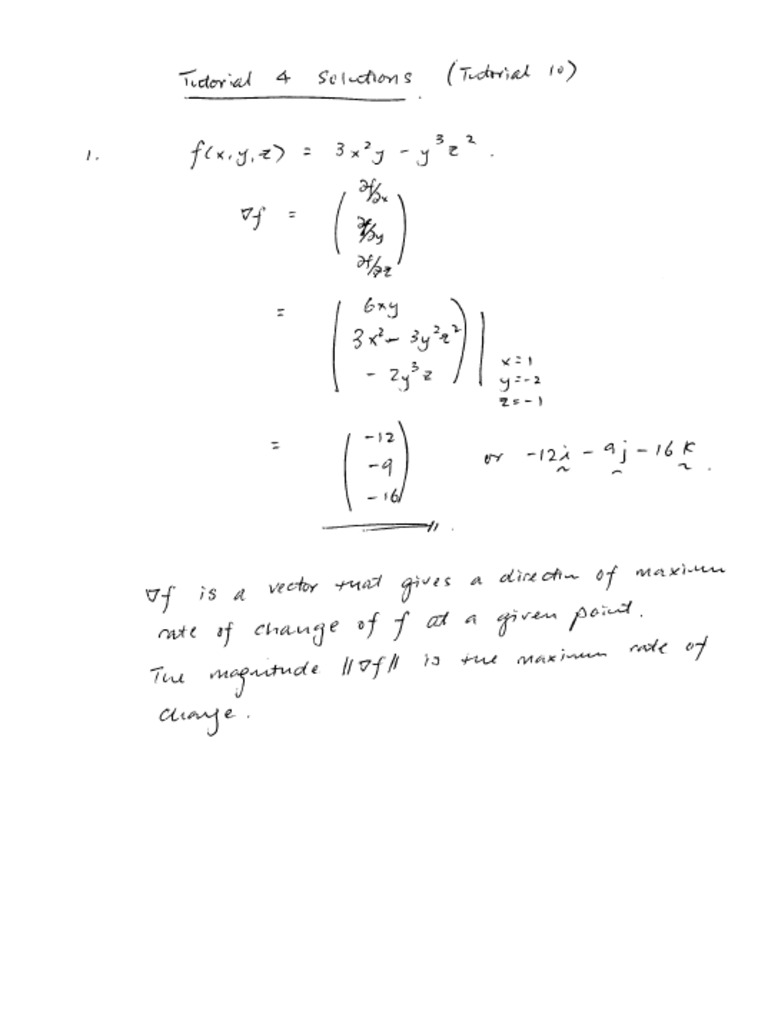 Tutorial 4 Solutions (Tutorial 10)
1. f(x,y,z) = 3x²y - y³z².
∇f = ( ∂f/∂x
∂f/∂y
∂f/∂z )
= ( 6xy
3x² - 3y²z²
- 2y³z ) | x=1
y=-2
z=-1
= ( -12
-9
-16 ) or -12i - 9j - 16k.
∇f is a vector that gives a direction of maximum
rate of change of f at a given point.
The magnitude ||∇f|| is the maximum rate of
change.